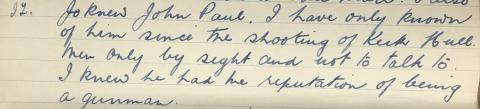 knew John Paul. I have only known
of him since the shooting of Hull
then only by sight and not to talk to.
I knew he had the reputation of being
a gunman.